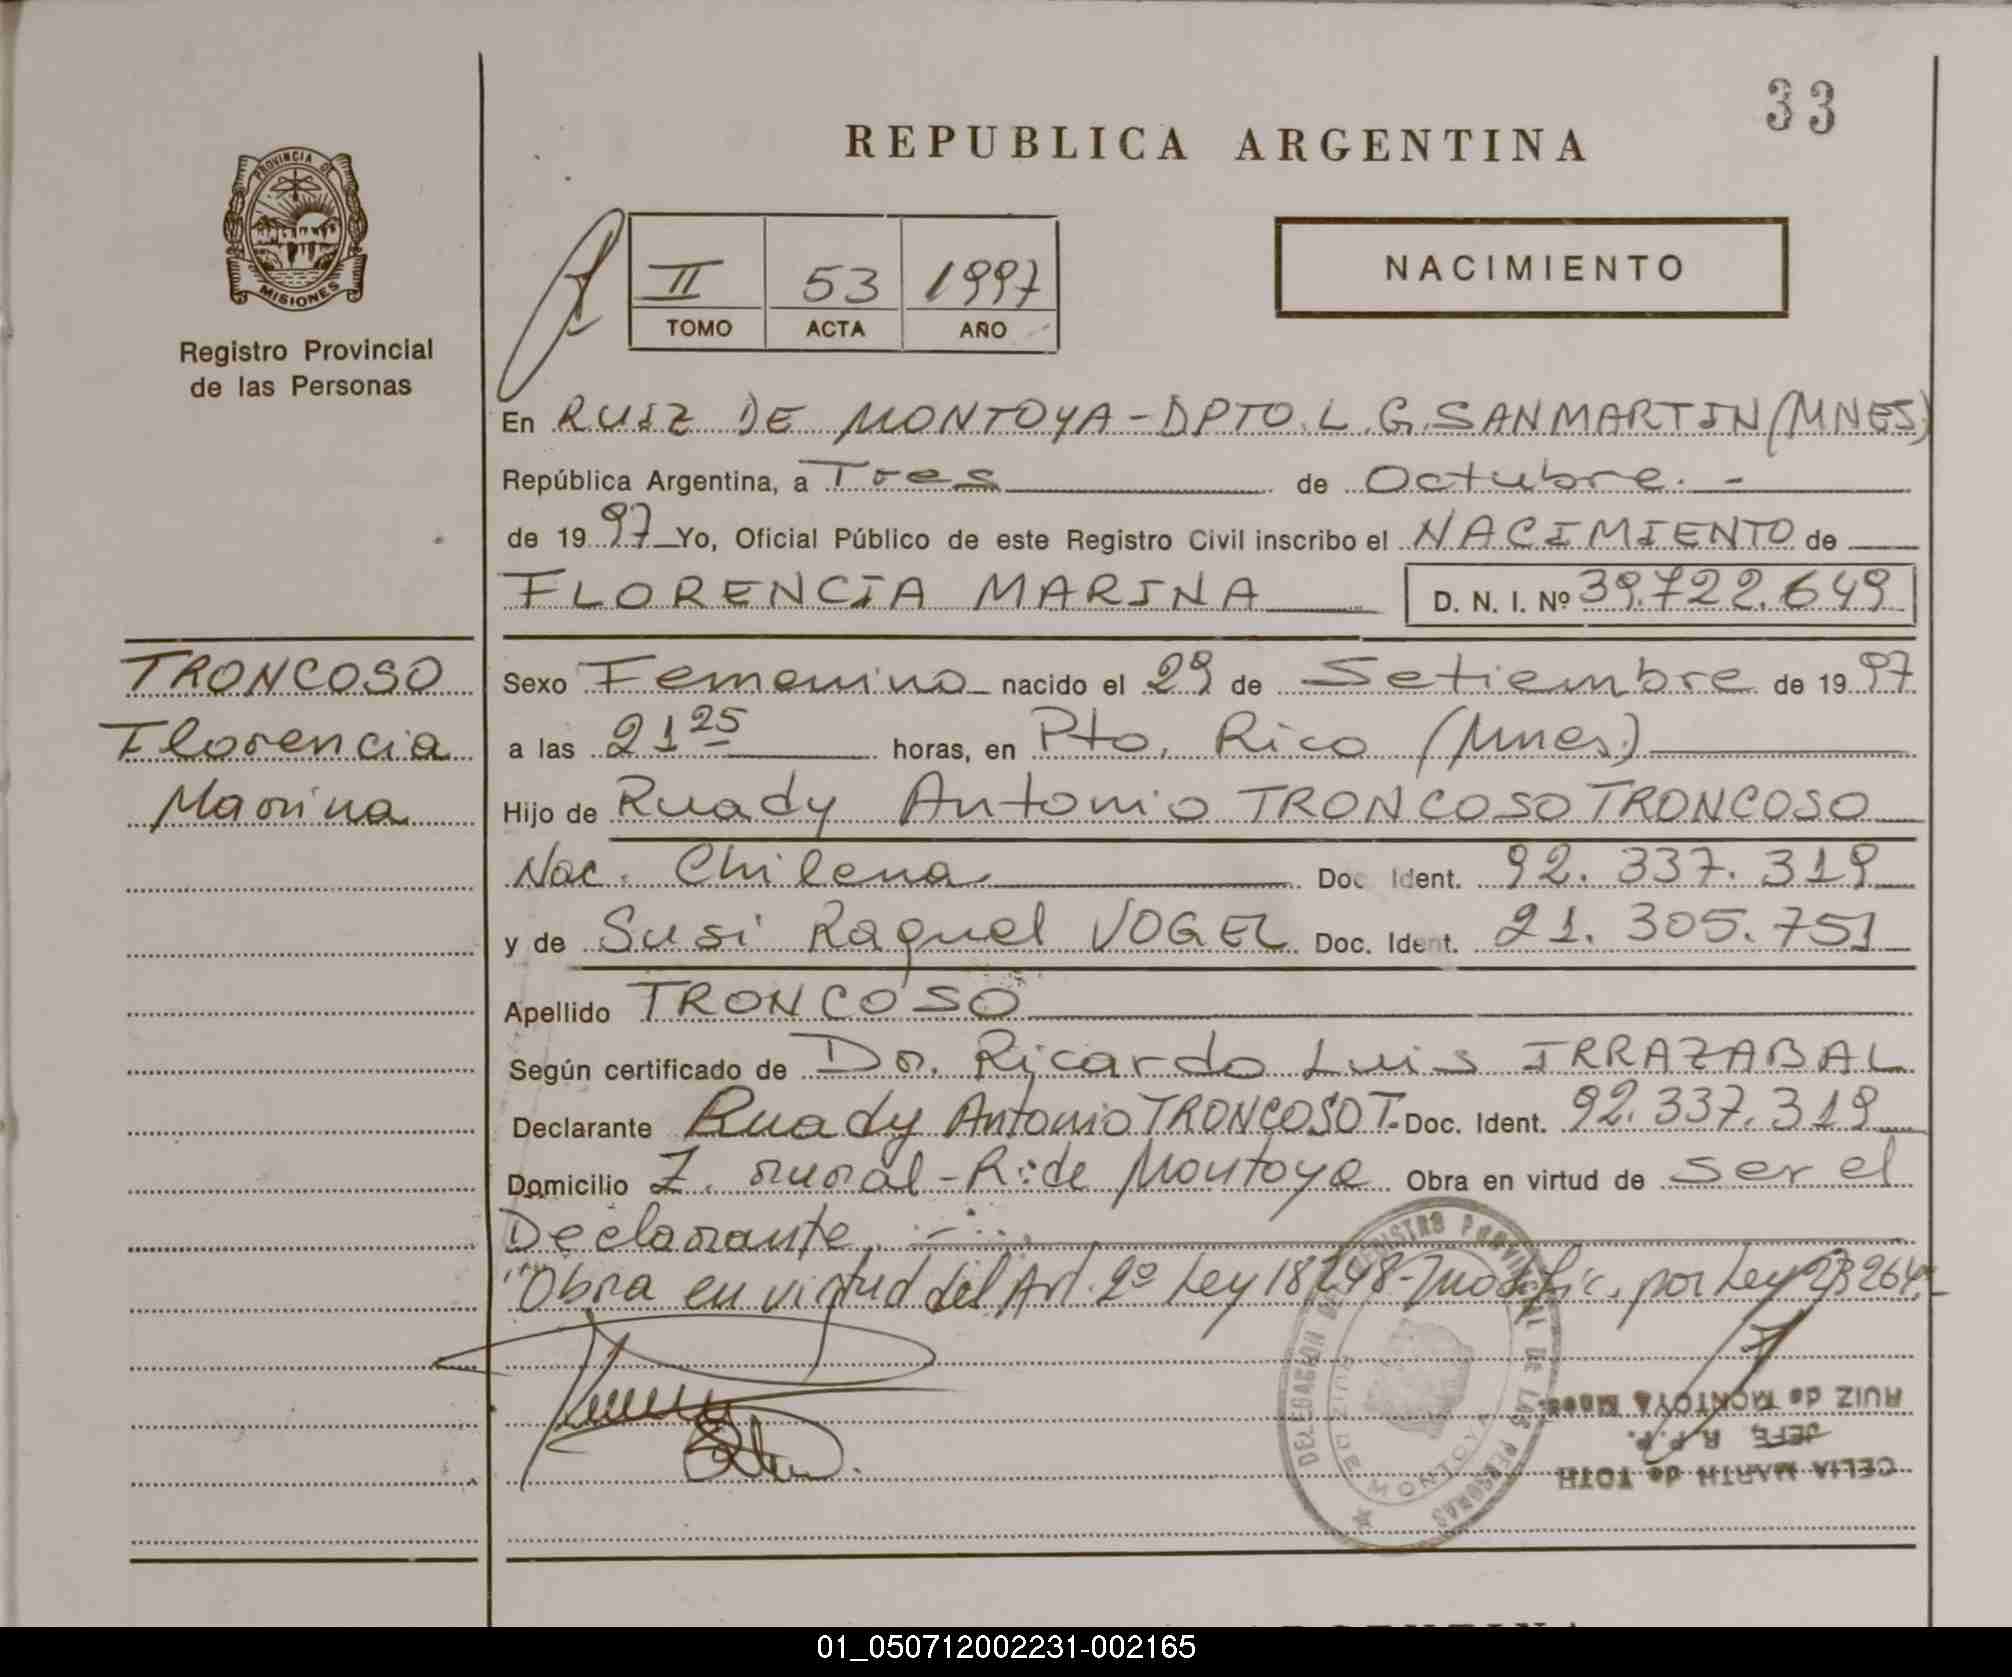 33
REPUBLICA ARGENTINA
PROVINCIA DE
MISIONES
Registro Provincial
de las Personas
II 53 1997
TOMO ACTA AÑO
NACIMIENTO
En RUIZ DE MONTOYA - DPTO. L. G. SAN MARTIN (MNES)
República Argentina, a Tres de Octubre. -
de 19 97 Yo, Oficial Público de este Registro Civil inscribo el NACIMIENTO de
FLORENCIA MARINA D. N. I. Nº 39.722.649
TRONCOSO
Florencia
Marina
Sexo Femenino nacido el 29 de Setiembre de 19 97
a las 21 25 horas, en Pto. Rico (Mnes.)
Hijo de Ruady Antonio TRONCOSO TRONCOSO
Nac. Chilena Doc. Ident. 92.337.319
y de Susi Raquel VOGEL Doc. Ident. 21.305.751
Apellido TRONCOSO
Según certificado de Dr. Ricardo Luis IRRAZABAL
Declarante Ruady Antonio TRONCOSO T. Doc. Ident. 92.337.319
Domicilio Z. rural - R. de Montoya Obra en virtud de ser el
Declarante. -
"Obra en virtud del Art. 2º Ley 18248 - modific. por Ley 23264. -
DELEGACION DEL REGISTRO PROVINCIAL DE LAS PERSONAS
DE MONTOYA
CELIA MARTH de TOTH
JEFE R. P. P.
RUIZ de MONTOYA Mnes.
01_050712002231-002165